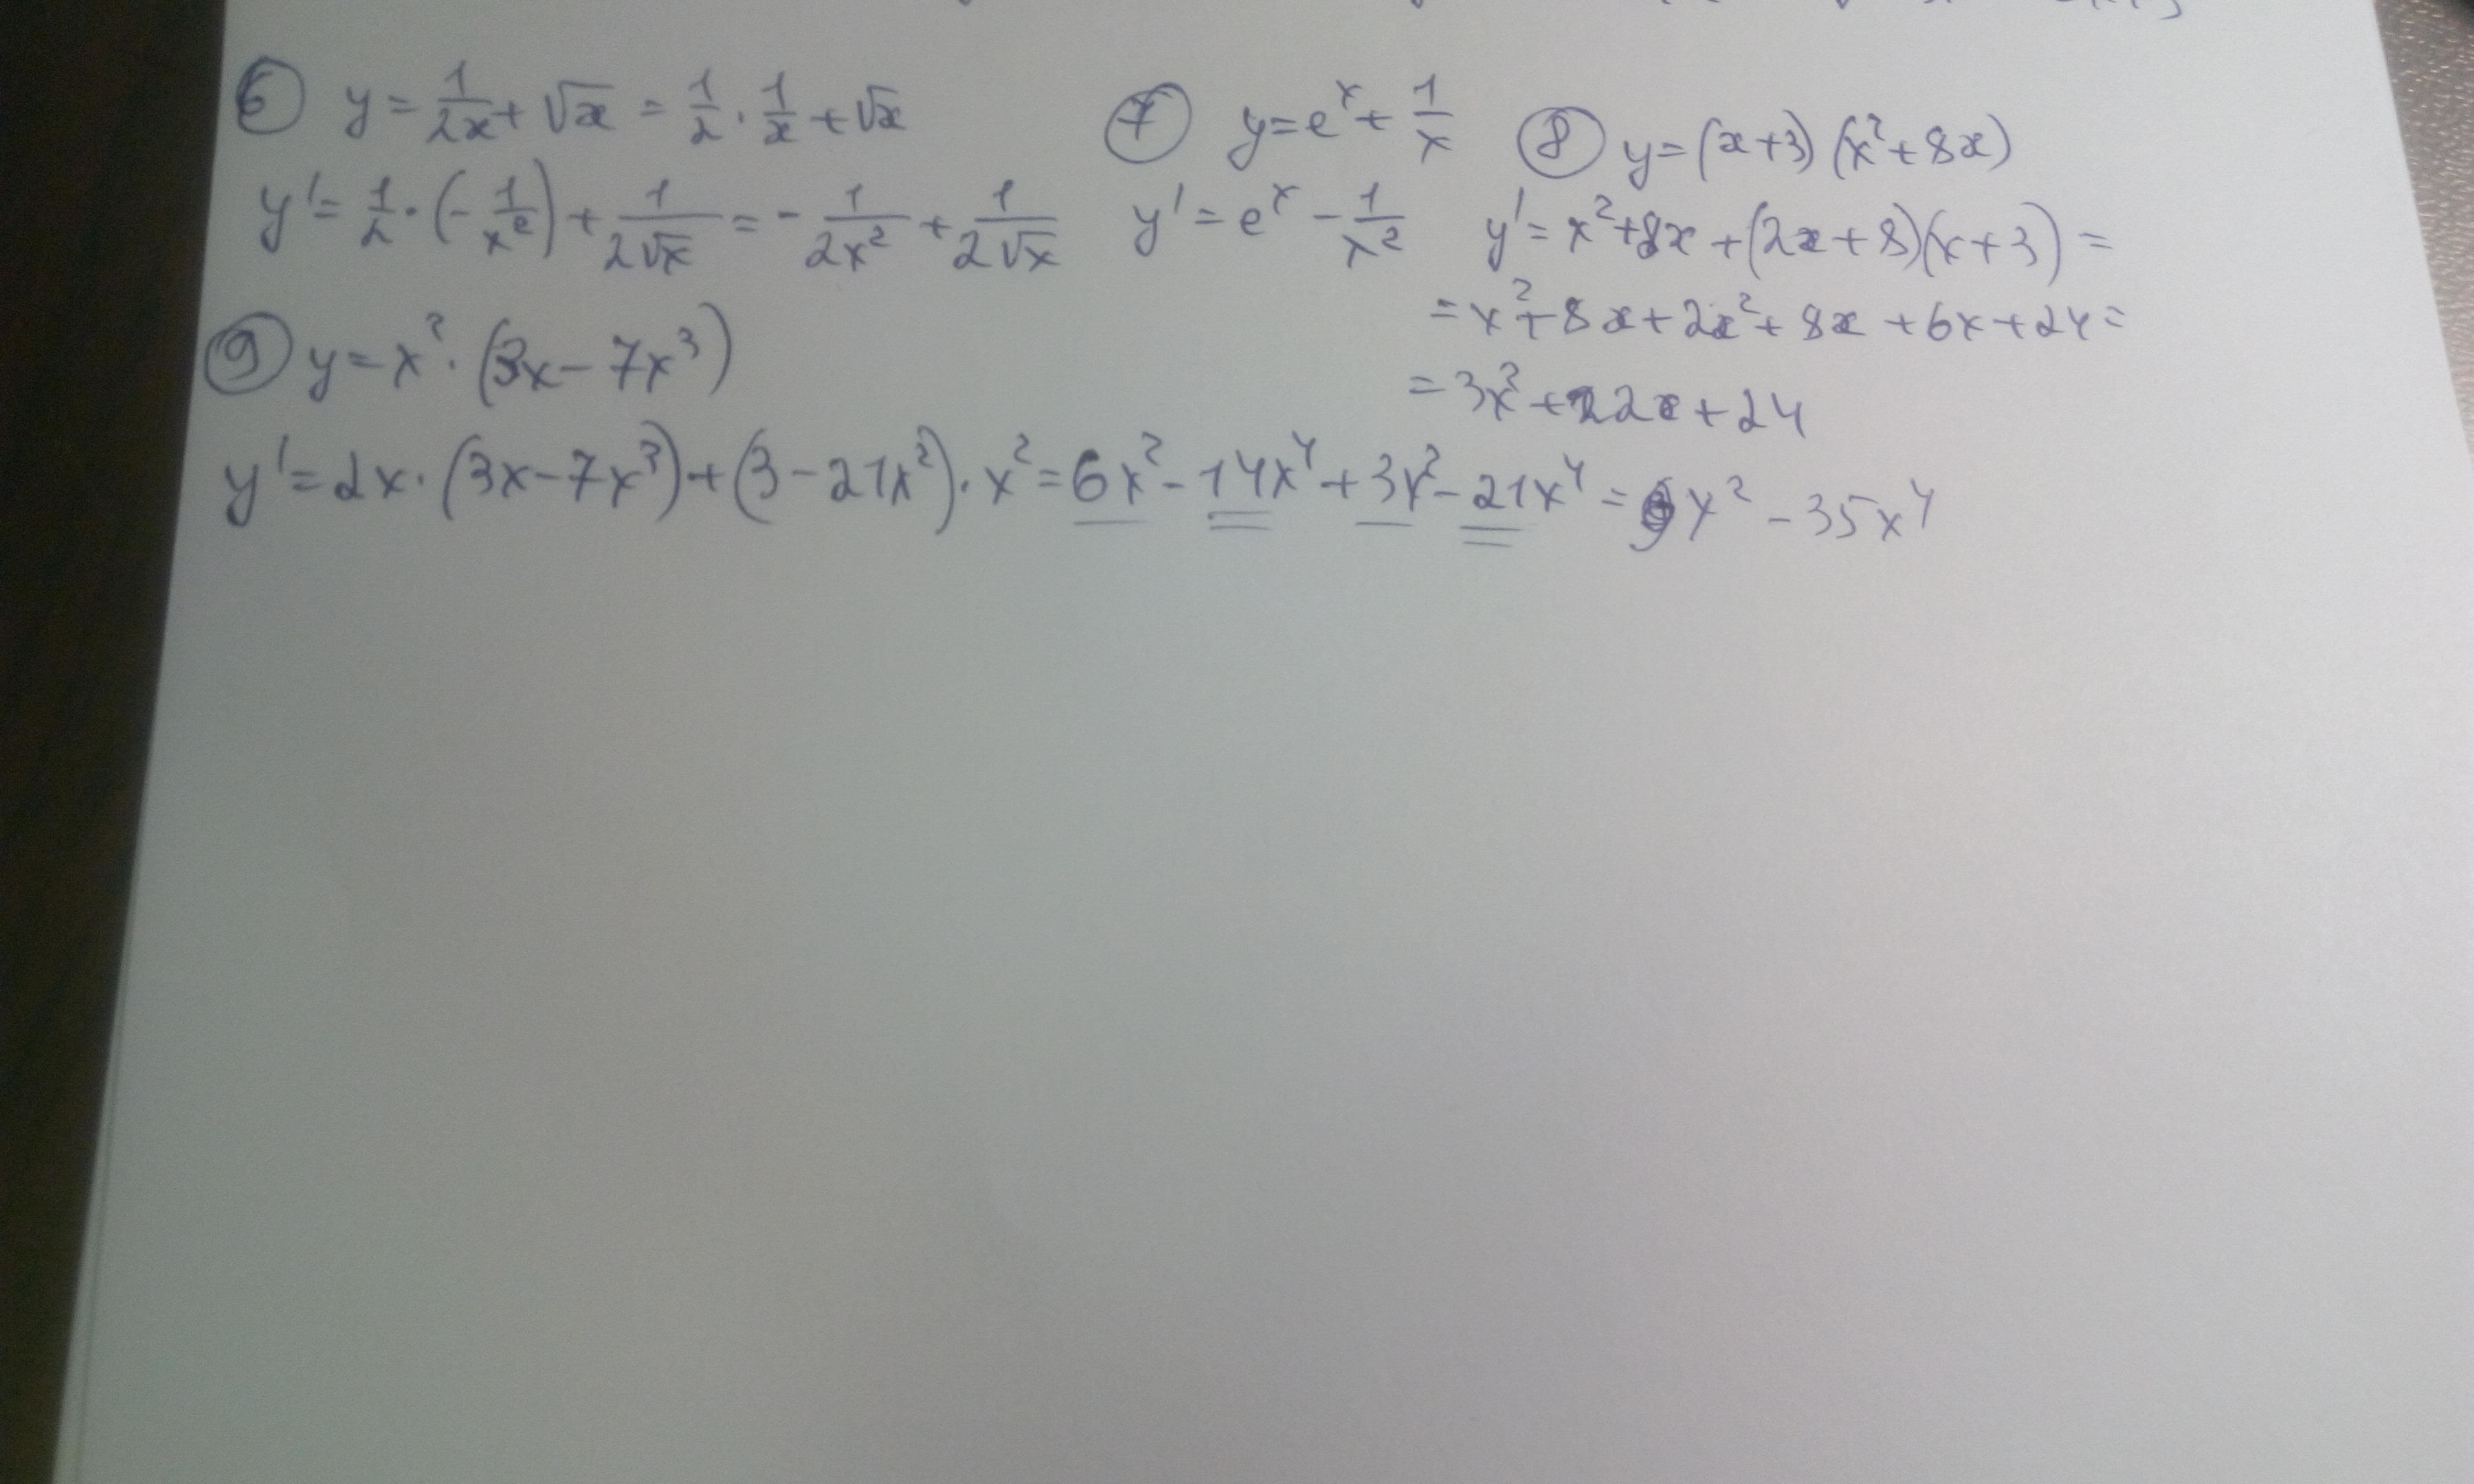 ⑥ y = 1/(2x) + √x = 1/2 · 1/x + √x
y' = 1/2 · (-1/x²) + 1/(2√x) = -1/(2x²) + 1/(2√x)
⑦ y = e^x + 1/x
y' = e^x - 1/x²
⑧ y = (x+3)(x²+8x)
y' = x²+8x+(2x+8)(x+3) =
= x²+8x+2x²+8x+6x+24 =
= 3x²+22x+24
⑨ y = x² · (3x - 7x³)
y' = 2x · (3x - 7x³) + (3 - 21x²) · x² = 6x² - 14x⁴ + 3x² - 21x⁴ = 9x² - 35x⁴